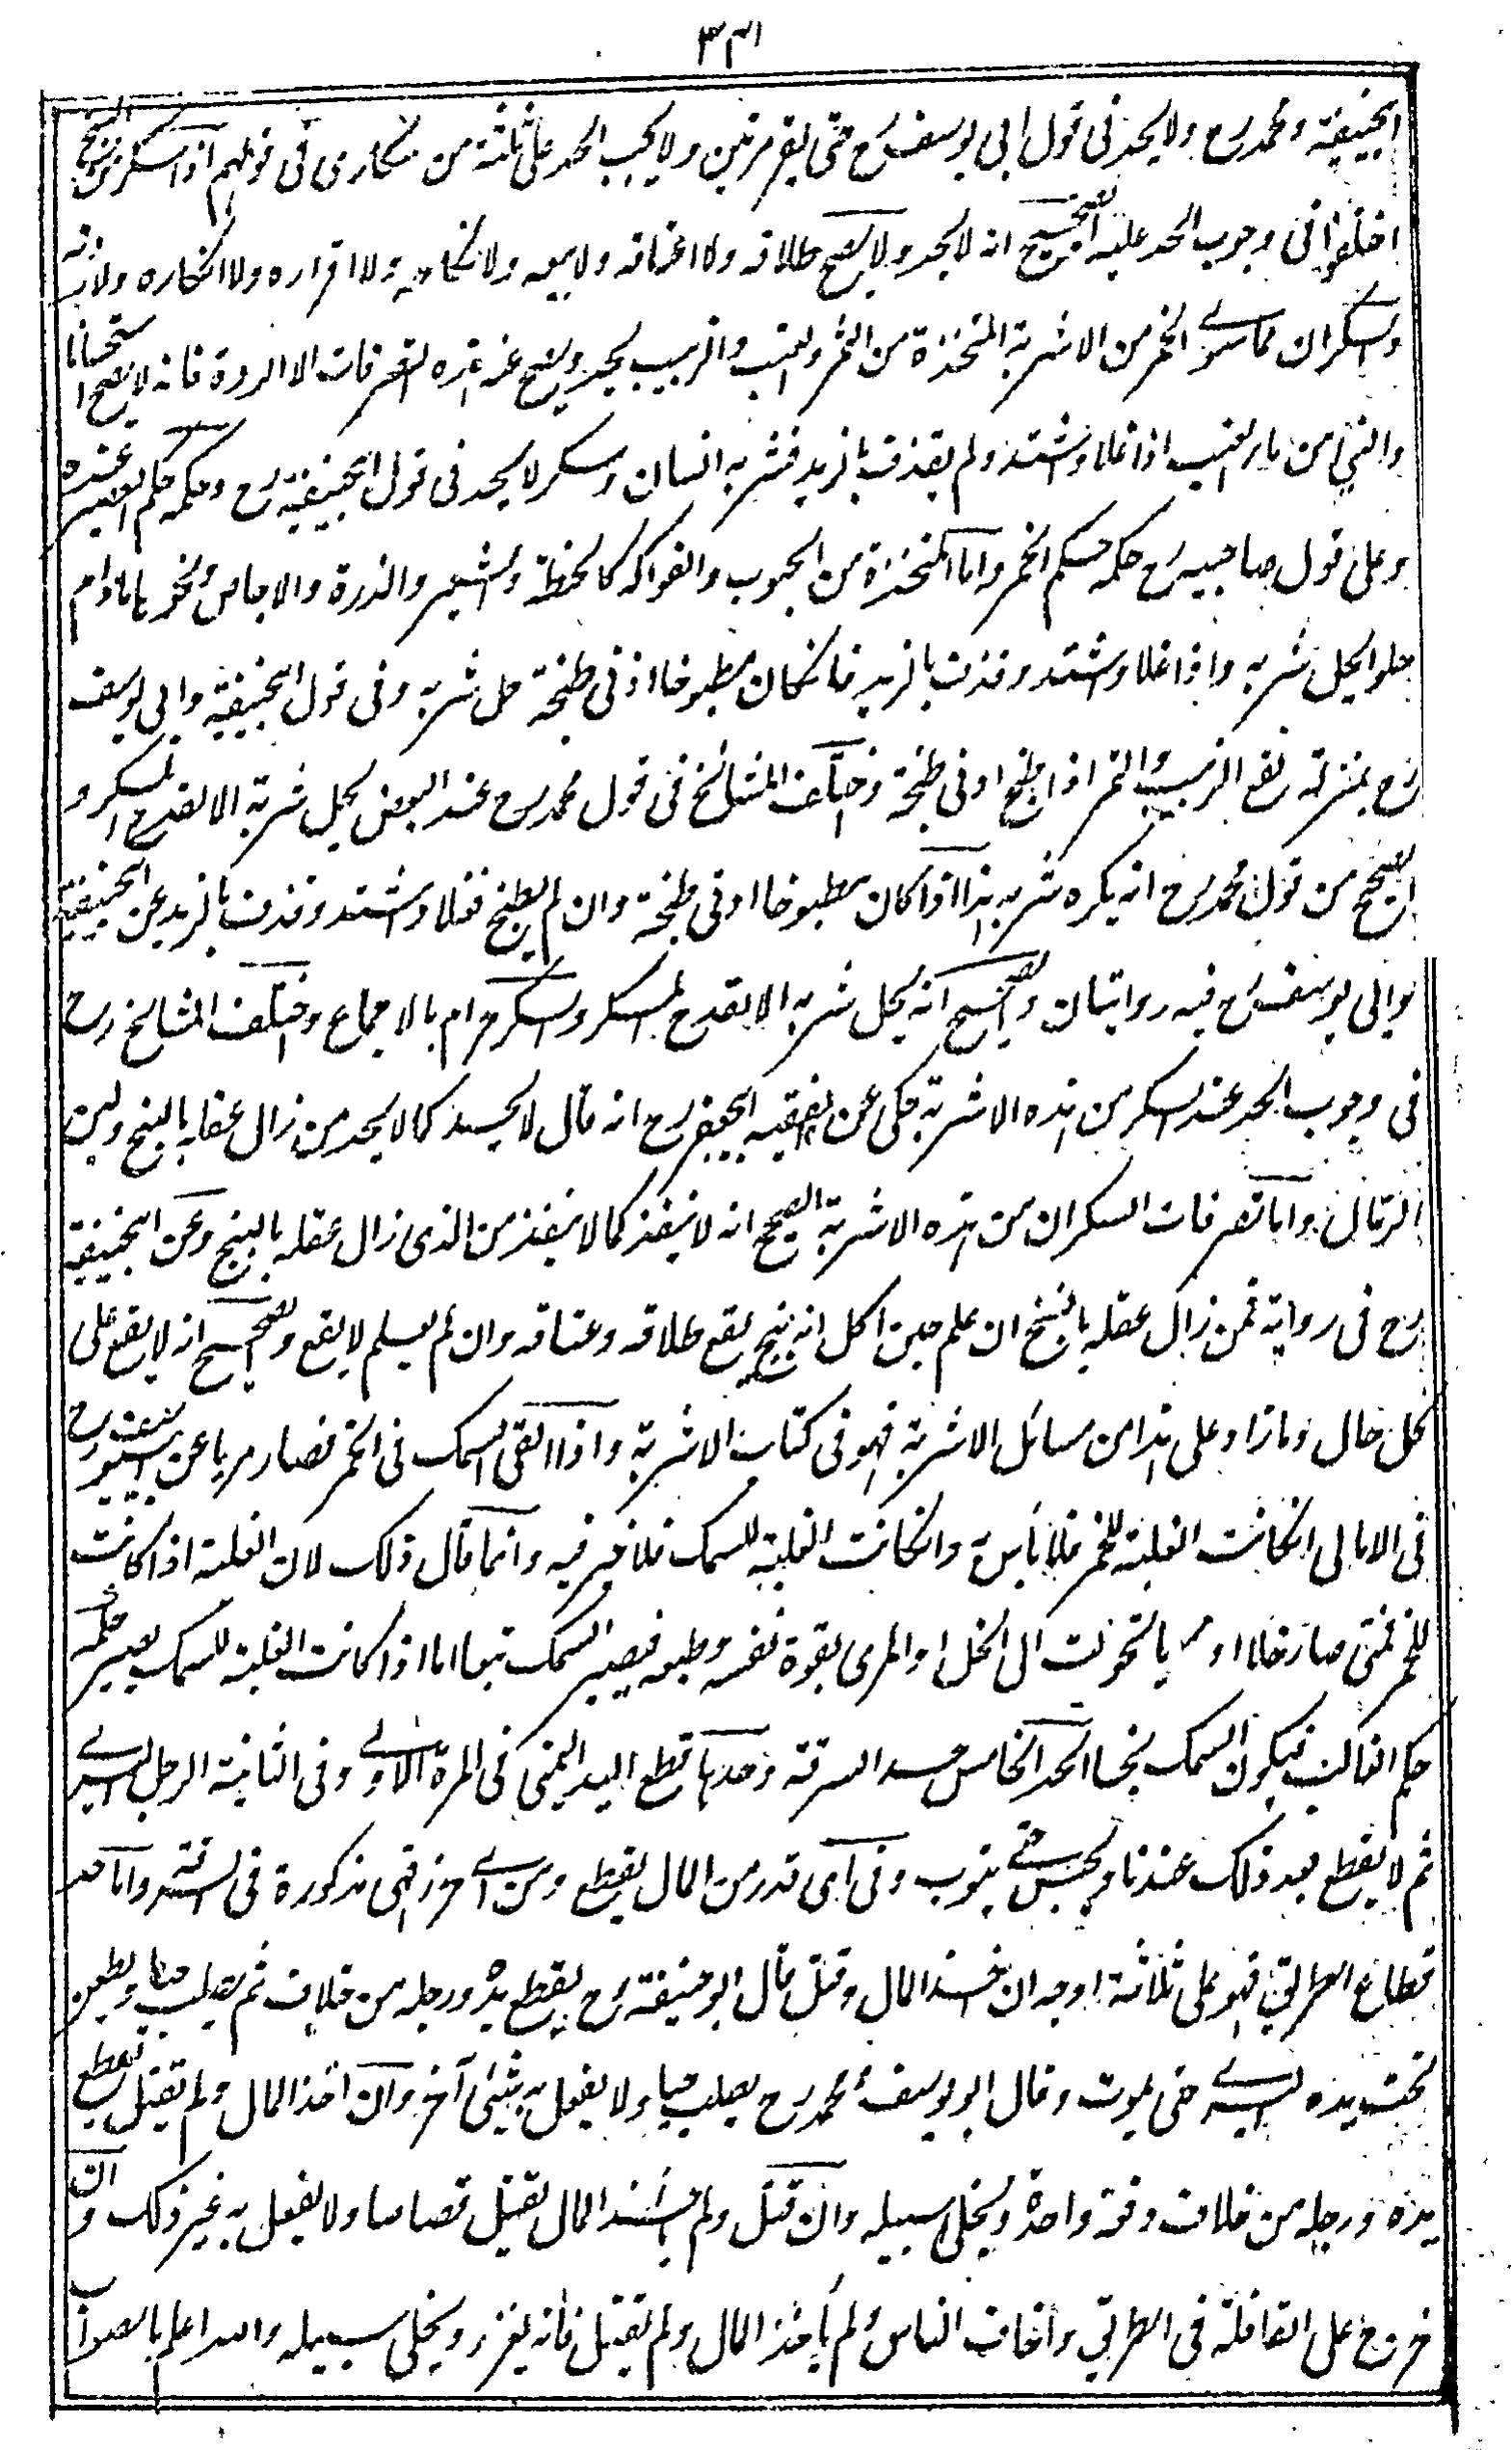 ٣٤١
ابيحنيفة ومحمد رح ولا يحد فى قول ابى يوسف رح حتى يقر مرتين ولا يجب الحد على ثلثة من سكارى فى قولهم اذا سكر من البنج
اختلفوا فى وجوب الحد عليه الصحيح انه لا يحد ولا يصح طلاقه ولا اعتاقه ولا بيعه ولا نكاحه ولا اقراره ولا انكاره ولا ردته
والسكران مما سوى الخمر من الاشربة المتخذة من التمر والعنب والزبيب يحد ويصح عنه هذه التصرفات الا الردة فانه لا يصح استحسانا
والنيئ من ماء العنب اذا غلا واشتد ولم يقذف بالزبد فشربه انسان وسكر لا يحد فى قول ابيحنيفة رح وحكمه حكم العصير عنده
وعلى قول صاحبيه رح حكمه حكم الخمر واما المتخذة من الحبوب والفواكه كالحنطة والشعير والذرة والاجاص ونحوها ما دام
حلوا يحل شربه واذا غلا واشتد وقذف بالزبد فانكان مطبوخا ادنى طبخة حل شربه وفى قول ابيحنيفة وابى يوسف
رح بمنزلة نقيع الزبيب والتمر اذا طبخ ادنى طبخة واختلف المشائخ فى قول محمد رح عند البعض يحل شربه الا القدح المسكر و
الصحيح من قول محمد رح انه يكره شربه هذا اذا كان مطبوخا ادنى طبخة وان لم يطبخ فغلا واشتد وقذف بالزبد عن ابيحنيفة
وابى يوسف رح فيه روايتان والصحيح انه يحل شربه الا القدح المسكر والسكر حرام بالاجماع واختلف المشائخ رح
فى وجوب الحد عند السكر من هذه الاشربة حكى عن الفقيه ابيجعفر رح انه قال لا يحد كما لا يحد من زال عقله بالبنج ولبن
الرماك واما تصرفات السكران من هذه الاشربة الصحيح انه لا ينفذ كما لا ينفذ من الذى زال عقله بالبنج وعن ابيحنيفة
رح فى رواية فمن زال عقله بالبنج ان علم حين اكل انه بنج يقع طلاقه وعتاقه وان لم يعلم لا يقع والصحيح انه لا يقع على
كل حال وما زاد على هذا من مسائل الاشربة فهو فى كتاب الاشربة واذا القى السمك فى الخمر فصار مريا عن ابييوسف رح
فى الامالى انكانت الغلبة للخمر فلا بأس وانكانت الغلبة للسمك فلا خير فيه وانما قال ذلك لان الغلبة اذا كانت
للخمر فمتى صار خلا او مريا تحولت الى الخل او المرى بقوة نفسه وطبعه فيصير السمك تبعا اما اذا كانت الغلبة للسمك يصير حكمه
حكم الغالب فيكون السمك نجسا الحد الخامس حد السرقة وحدها قطع اليد اليمنى فى المرة الاولى وفى الثانية الرجل اليسرى
ثم لا يقطع بعد ذلك عندنا ويحبس حتى يتوب وفى اى قدر من المال يقطع ومن اى حرز فهى مذكورة فى السرقة واما حد
قطاع الطريق فهو على ثلاثة اوجه ان اخذ المال وقتل قال ابو حنيفة رح يقطع يده ورجله من خلاف ثم يصلب حيا ويطعن
تحت يده اليسرى حتى يموت وقال ابو يوسف ومحمد رح يصلب حيا ولا يفعل به شيئ آخر وان اخذ المال ولم يقتل يقطع
يده ورجله من خلاف دفعة واحدة ويخلى سبيله وان قتل ولم يأخذ المال يقتل قصاصا ولا يفعل به غير ذلك وان
خروج على القافلة فى الطريق واخاف الناس ولم يأخذ المال ولم يقتل فانه يعزر ويخلى سبيله والله اعلم بالصواب